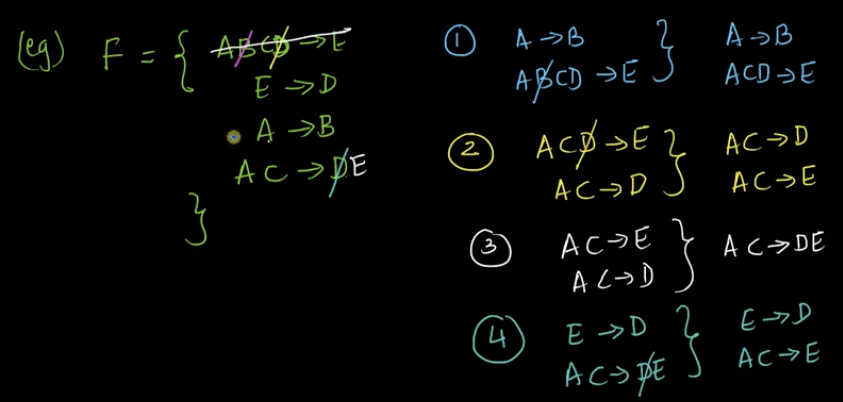 (eg) F = { ABCD → E
E → D
A → B
AC → DE
}
① A → B } A → B
ABCD → E ACD → E
② ACD → E } AC → D
AC → D AC → E
③ AC → E } AC → DE
AC → D
④ E → D } E → D
AC → DE AC → E